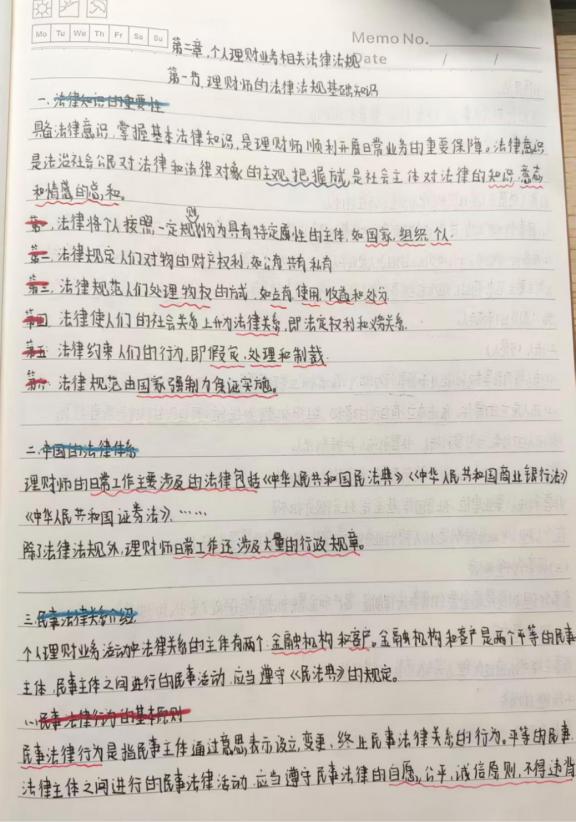 Mo Tu We Th Fr Sa Su
Memo No.
Date / /
第二章，个人理财业务相关法律法规
第一节，理财师的法律法规基础知识
一、法律知识的重要性
具备法律意识，掌握基本法律知识，是理财师顺利开展日常业务的重要保障。法律意识
是法治社会公民对法律和法律对象的主观把握方式，是社会主体对法律的知识，意志
和情感的总和。
第一，法律将个人按照一定规则划分为具有特定属性的主体，如国家，组织，个人
第二，法律规定人们对物的财产权利，如公有共有私有
第三，法律规范人们处理物权的方式，如占有使用收益和处分
第四，法律使人们的社会关系上升为法律关系，即法定权利和义务关系.
第五，法律约束人们的行为，即假定，处理和制裁.
第六，法律规范由国家强制力保证实施。
二.中国的法律体系
理财师的日常工作主要涉及的法律包括《中华人民共和国民法典》《中华人民共和国商业银行法》
《中华人民共和国证券法》、……
除了法律法规外，理财师日常工作还涉及大量的行政规章。
三.民事法律关系介绍
个人理财业务活动中法律关系的主体有两个，金融机构和客户。金融机构和客户是两个平等的民事
主体，民事主体之间进行的民事活动，应当遵守《民法典》的规定。
(一)民事法律行为的基本原则
民事法律行为是指民事主体通过意思表示设立，变更，终止民事法律关系的行为。平等的民事
法律主体之间进行的民事法律活动，应当遵守民事法律的自愿，公平，诚信原则，不得违背